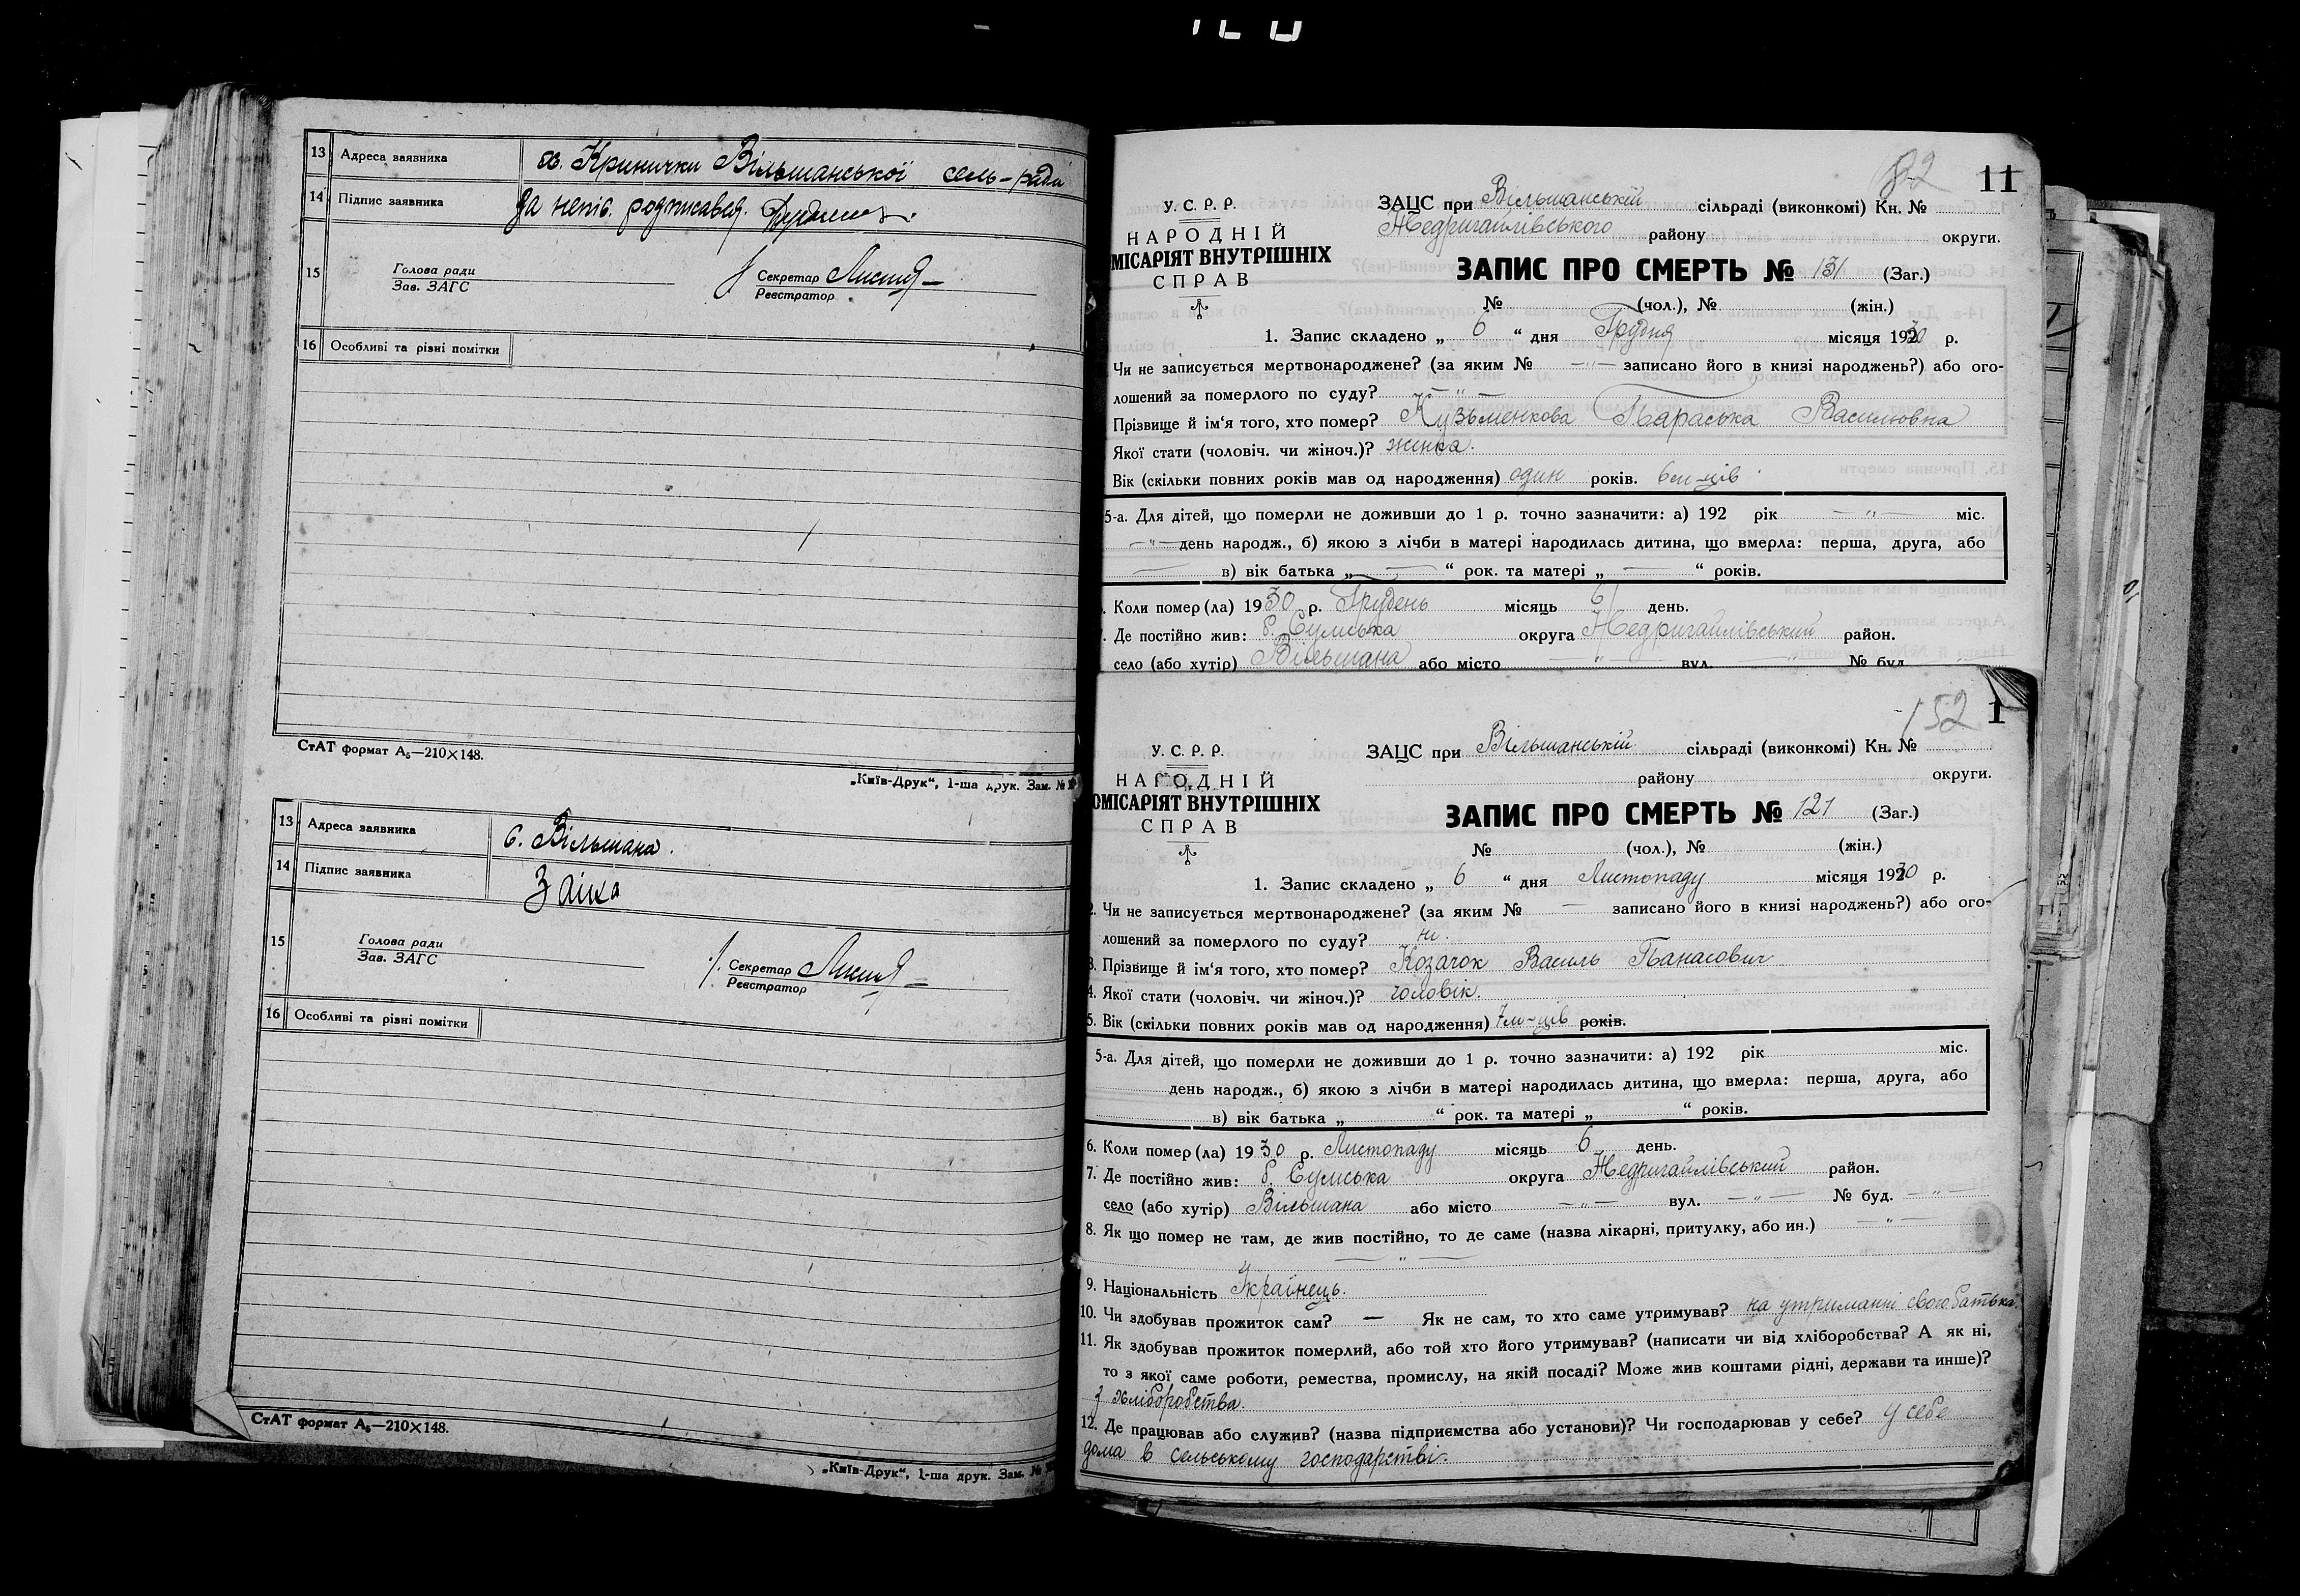 13 Адреса заявника х. Кринички Вільшанської сель-ради
14 Підпис заявника За непис. розписався.
15 Голова ради
Зав. ЗАГС
Секретар
Реєстратор
16 Особливі та різні помітки
СтАТ формат А₅—210×148.
„Київ-Друк“, 1-ша друк. Зам. №
13 Адреса заявника с. Вільшана.
14 Підпис заявника Заїка
15 Голова ради
Зав. ЗАГС
Секретар
Реєстратор
16 Особливі та різні помітки
СтАТ формат А₅—210×148.
„Київ-Друк“, 1-ша друк. Зам. №
11
У. С. Р. Р.
НАРОДНІЙ
МІСАРІЯТ ВНУТРІШНІХ
СПРАВ
ЗАЦС при Вільшанській сільраді (виконкомі) Кн. №
Недригайлівського району округи.
ЗАПИС ПРО СМЕРТЬ № 131 (Заг.)
№ (чол.), № (жін.)
1. Запис складено „ 6 “ дня Грудня місяця 1930 р.
Чи не записується мертвонароджене? (за яким № —"— записано його в книзі народжень?) або ого-
лошений за померлого по суду? —"—
Прізвище й ім‘я того, хто помер? Кузьменкова Параська Василювна
Якої стати (чоловіч. чи жіноч.)? жінка.
Вік (скільки повних років мав од народження) один років. 6 м-ців
5-а. Для дітей, що померли не доживши до 1 р. точно зазначити: а) 192 рік —"— міс.
—"— день народж., б) якою з лічби в матері народилась дитина, що вмерла: перша, друга, або
— в) вік батька „ — “ рок. та матері „ — “ років.
. Коли помер (ла) 1930 р. Грудень місяць 6 день.
. Де постійно жив: б. Сумська округа Недригайлівський район.
село (або хутір) Вільшана або місто —"— вул. —"— № буд.
152 1
У. С. Р. Р.
НАРОДНІЙ
ОМІСАРІЯТ ВНУТРІШНІХ
СПРАВ
ЗАЦС при Вільшанській сільраді (виконкомі) Кн. №
району округи.
ЗАПИС ПРО СМЕРТЬ № 121 (Заг.)
№ (чол.), № (жін.)
1. Запис складено „ 6 “ дня Листопаду місяця 1930 р.
2. Чи не записується мертвонароджене? (за яким № — записано його в книзі народжень?) або ого-
лошений за померлого по суду? ні.
3. Прізвище й ім‘я того, хто помер? Козачок Василь Панасович
4. Якої стати (чоловіч. чи жіноч.)? чоловік.
5. Вік (скільки повних років мав од народження) 7 м-ців років.
5-а. Для дітей, що померли не доживши до 1 р. точно зазначити: а) 192 рік міс.
день народж., б) якою з лічби в матері народилась дитина, що вмерла: перша, друга, або
в) вік батька „ “ рок. та матері „ “ років.
6. Коли помер (ла) 1930 р. Листопаду місяць 6 день.
7. Де постійно жив: б. Сумська округа Недригайлівський район.
село (або хутір) Вільшана або місто —"— вул. —"— № буд. —"—
8. Як що помер не там, де жив постійно, то де саме (назва лікарні, притулку, або ин.) —"—
—"—
9. Національність Українець.
10. Чи здобував прожиток сам? — Як не сам, то хто саме утримував? на утриманні свого батька.
11. Як здобував прожиток померлий, або той хто його утримував? (написати чи від хліборобства? А як ні,
то з якої саме роботи, ремества, промислу, на якій посаді? Може жив коштами рідні, держави та инше)?
з хліборобства.
12. Де працював або служив? (назва підприємства або установи)? Чи господарював у себе? у себе
дома в сельському господарстві.